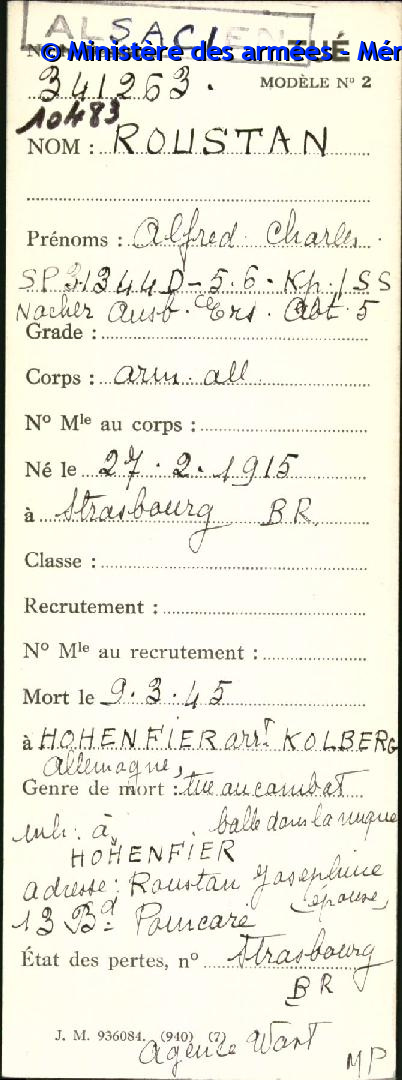 ALSACIEN
© Ministère des armées - Mém
TUÉ
341263.
MODÈLE Nº 2
10483
NOM : ROUSTAN
Prénoms : Alfred Charles.
SP 31344 D - 5.6 - Kp. / SS
Nacher Ausb. Ers. Abt. 5
Grade :
Corps : arm. all.
Nº Mle au corps :
Né le 27.2.1915
à Strasbourg BR
Classe :
Recrutement :
Nº Mle au recrutement :
Mort le 9.3.45
à HOHENFIER arrt KOLBERG
Allemagne,
Genre de mort : tué au combat
balle dans la nuque
inh. à
HOHENFIER
adresse : Roustan Joséphine
(épouse)
13 Bd Poincaré
État des pertes, nº Strasbourg
BR
J. M. 936084. (940) (7)
Agence Wast
MP